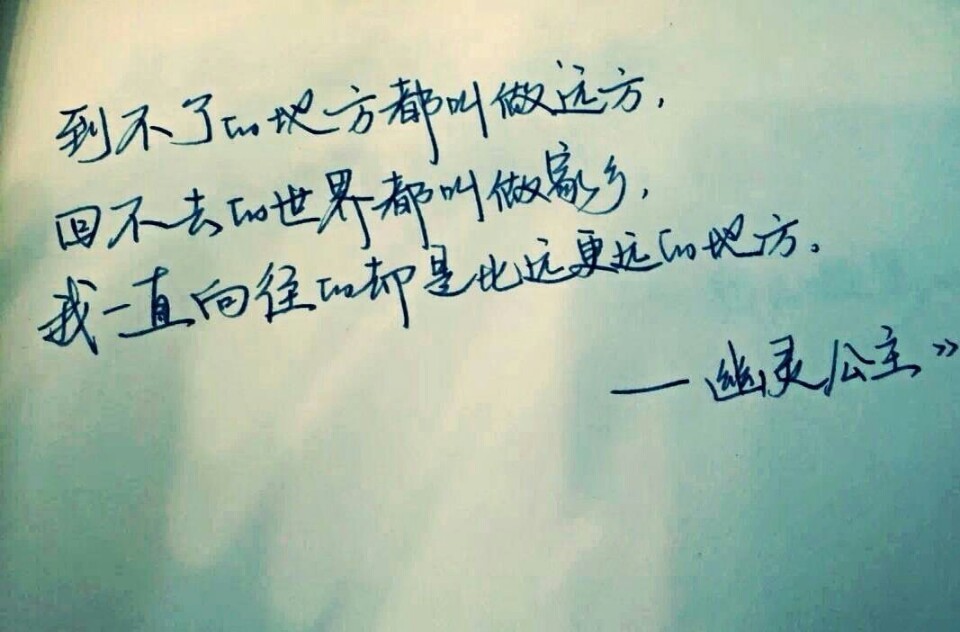 到不了的地方都叫做远方，
回不去的世界都叫做家乡，
我一直向往的却是比远更远的地方。
——幽灵公主》